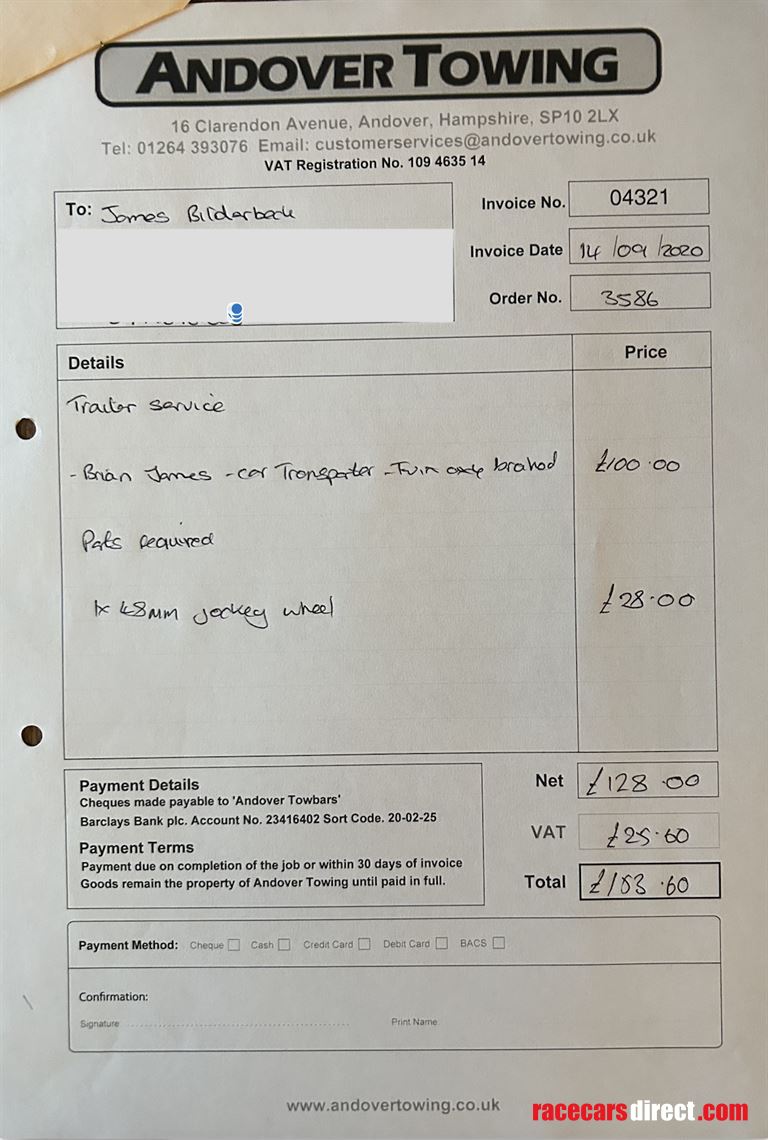 ANDOVER TOWING
16 Clarendon Avenue, Andover, Hampshire, SP10 2LX
Tel: 01264 393076 Email: customerservices@andovertowing.co.uk
VAT Registration No. 109 4635 14
To: James Bilderbeck
Invoice No. 04321
Invoice Date 14/09/2020
Order No. 3586
Details Price
Trailer service
- Brian James - car Transporter - Twin axle braked £100.00
Parts required
1x 48mm jockey wheel £28.00
Payment Details
Cheques made payable to 'Andover Towbars'
Barclays Bank plc. Account No. 23416402 Sort Code. 20-02-25
Payment Terms
Payment due on completion of the job or within 30 days of invoice
Goods remain the property of Andover Towing until paid in full.
Net £128.00
VAT £25.60
Total £153.60
Payment Method: Cheque Cash Credit Card Debit Card BACS
Confirmation:
Signature Print Name
www.andovertowing.co.uk
racecarsdirect.com